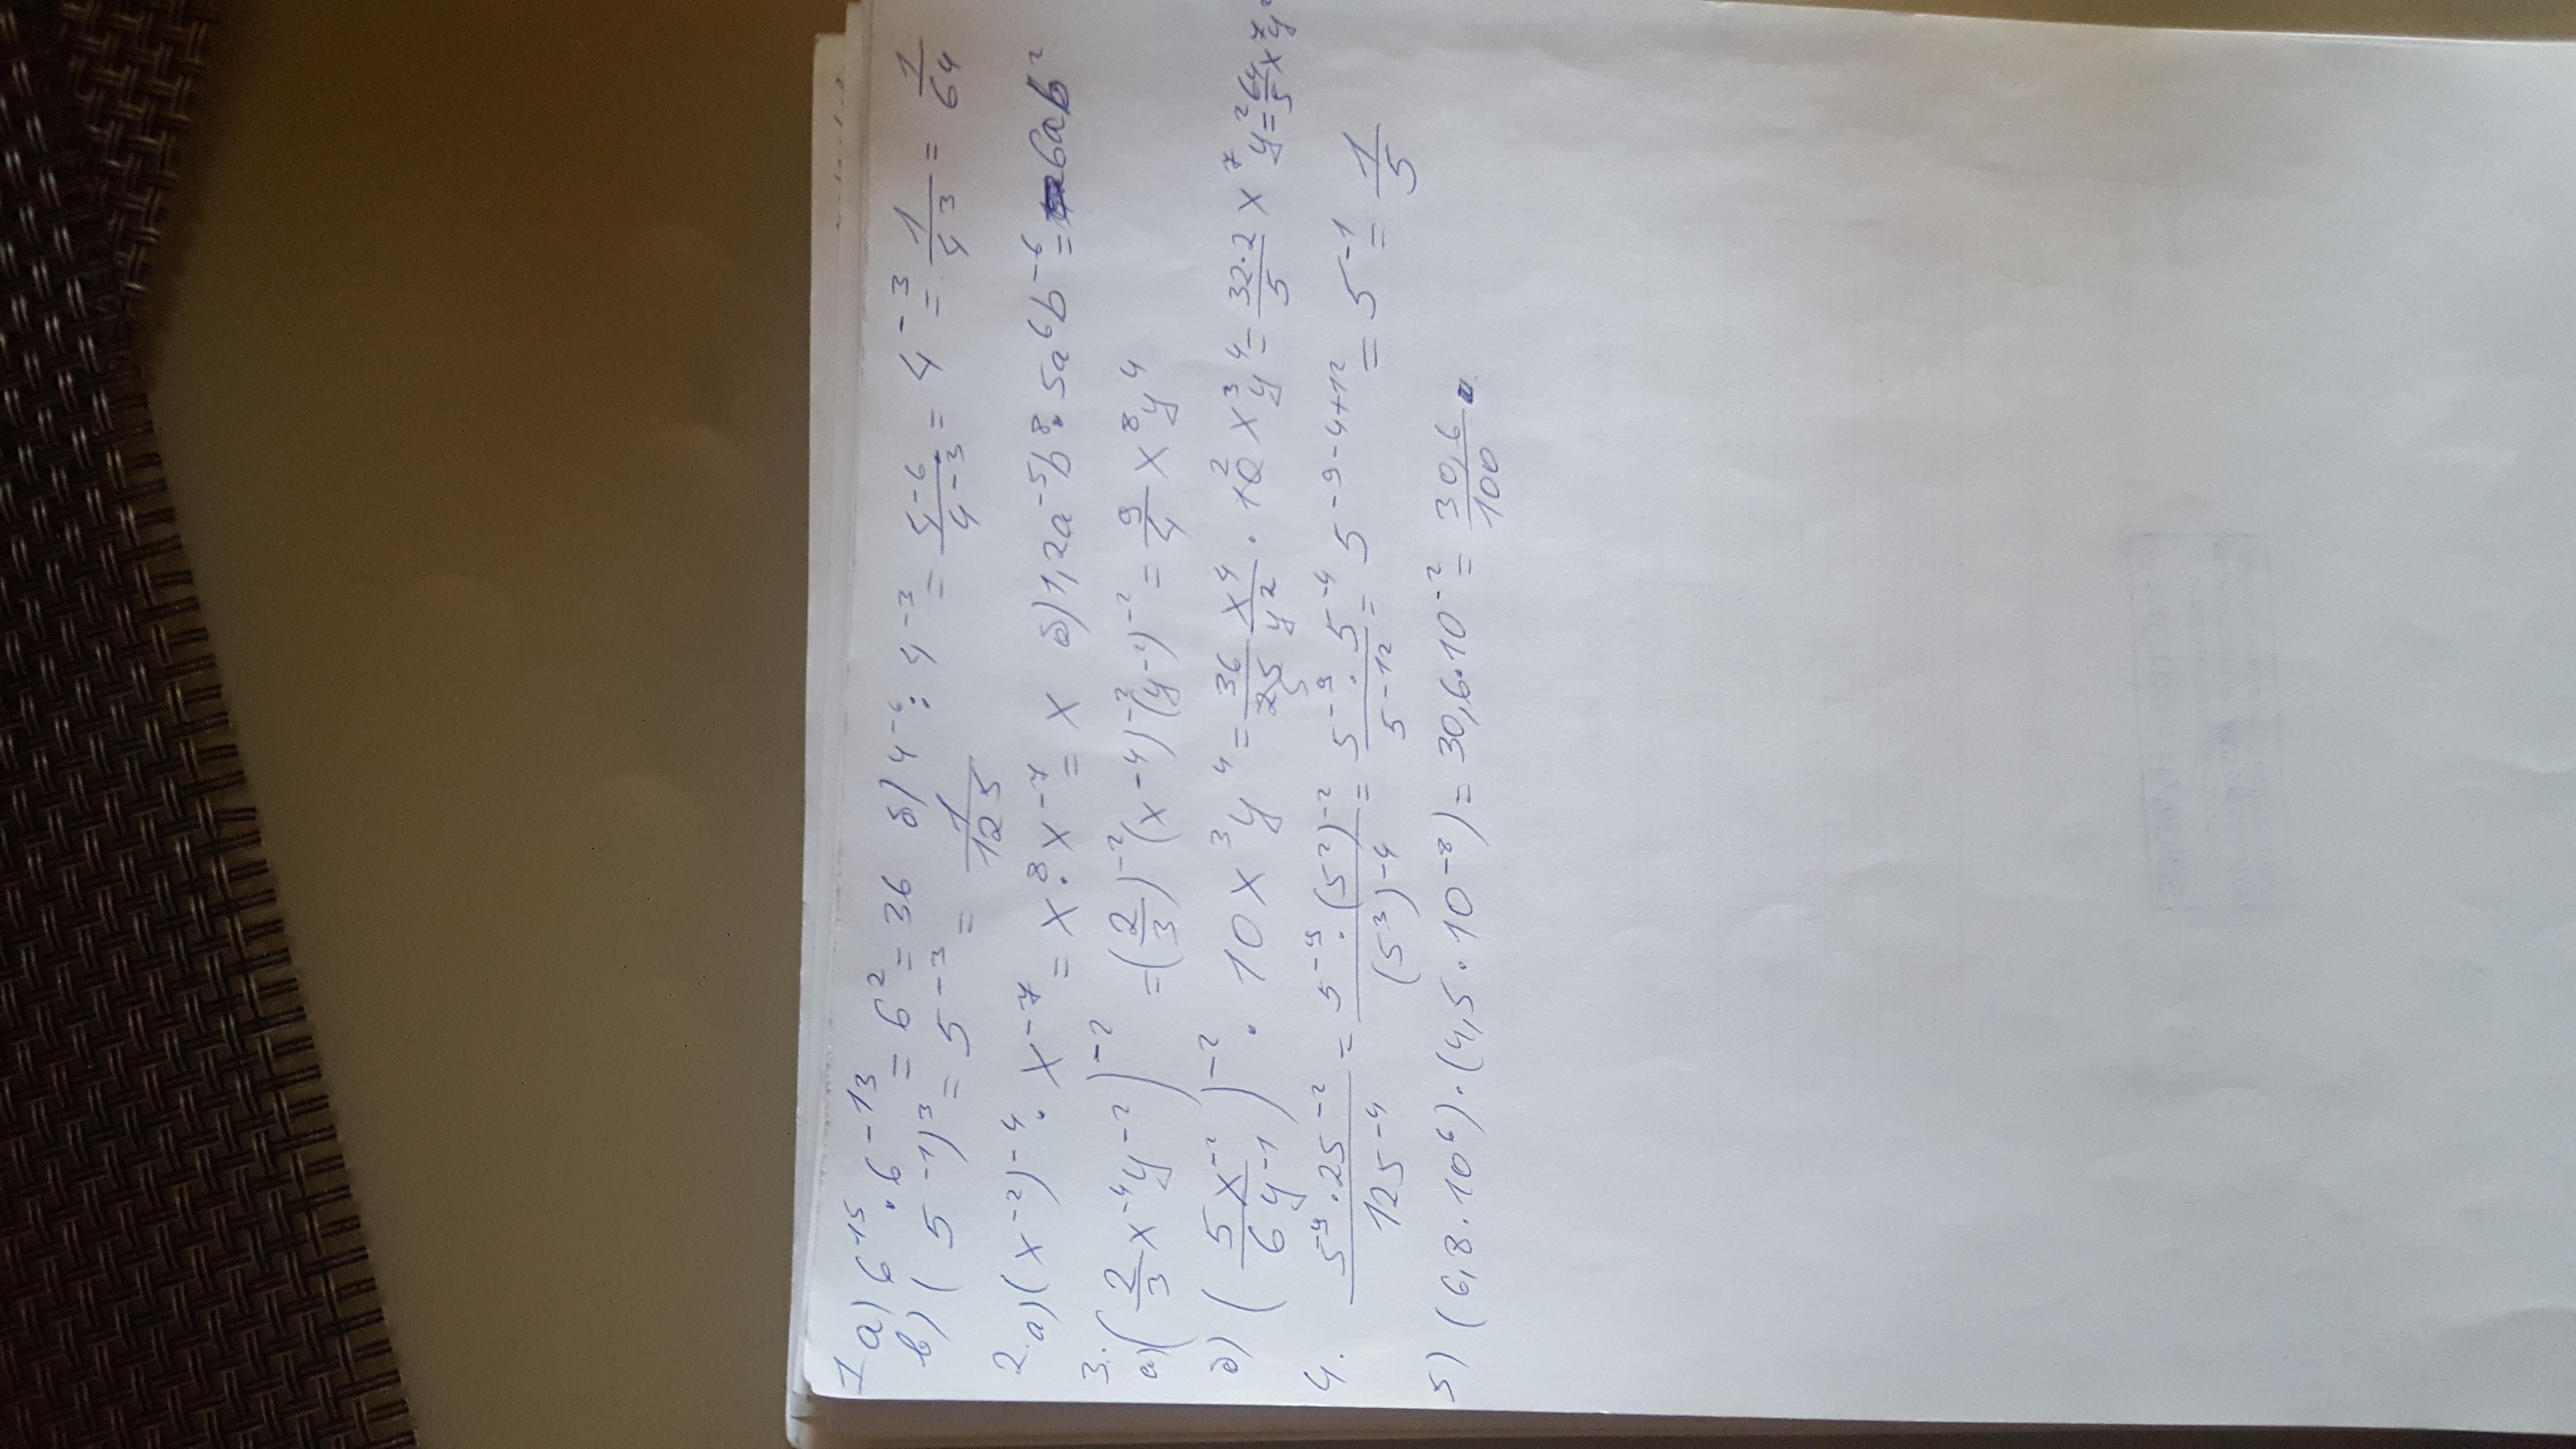 1 а) 6^{15} · 6^{-13} = 6^2 = 36 б) 4^{-6} : 4^{-3} = \frac{4^{-6}}{4^{-3}} = 4^{-3} = \frac{1}{4^3} = \frac{1}{64}
в) (5^{-1})^3 = 5^{-3} = \frac{1}{125}
2. а) (x^{-2})^{-4} · x^{-7} = x^8 · x^{-7} = x б) 1,2a^{-5}b^8 · 5a^6b^{-6} = 6ab^2
3.
а) (\frac{2}{3}x^{-4}y^{-2})^{-2} = (\frac{2}{3})^{-2}(x^{-4})^{-2}(y^{-2})^{-2} = \frac{9}{4}x^8y^4
б) (\frac{5x^{-2}}{6y^{-1}})^{-2} · 10x^3y^4 = \frac{36}{25}\frac{x^4}{y^2} · 10x^3y^4 = \frac{32·2}{5}x^7y^2 = \frac{64}{5}x^7y^2
4. \frac{5^{-9} · 25^{-2}}{125^{-4}} = \frac{5^{-9} · (5^2)^{-2}}{(5^3)^{-4}} = \frac{5^{-9} · 5^{-4}}{5^{-12}} = 5^{-9-4+12} = 5^{-1} = \frac{1}{5}
5) (6,8 · 10^6) · (4,5 · 10^{-8}) = 30,6 · 10^{-2} = \frac{30,6}{100}